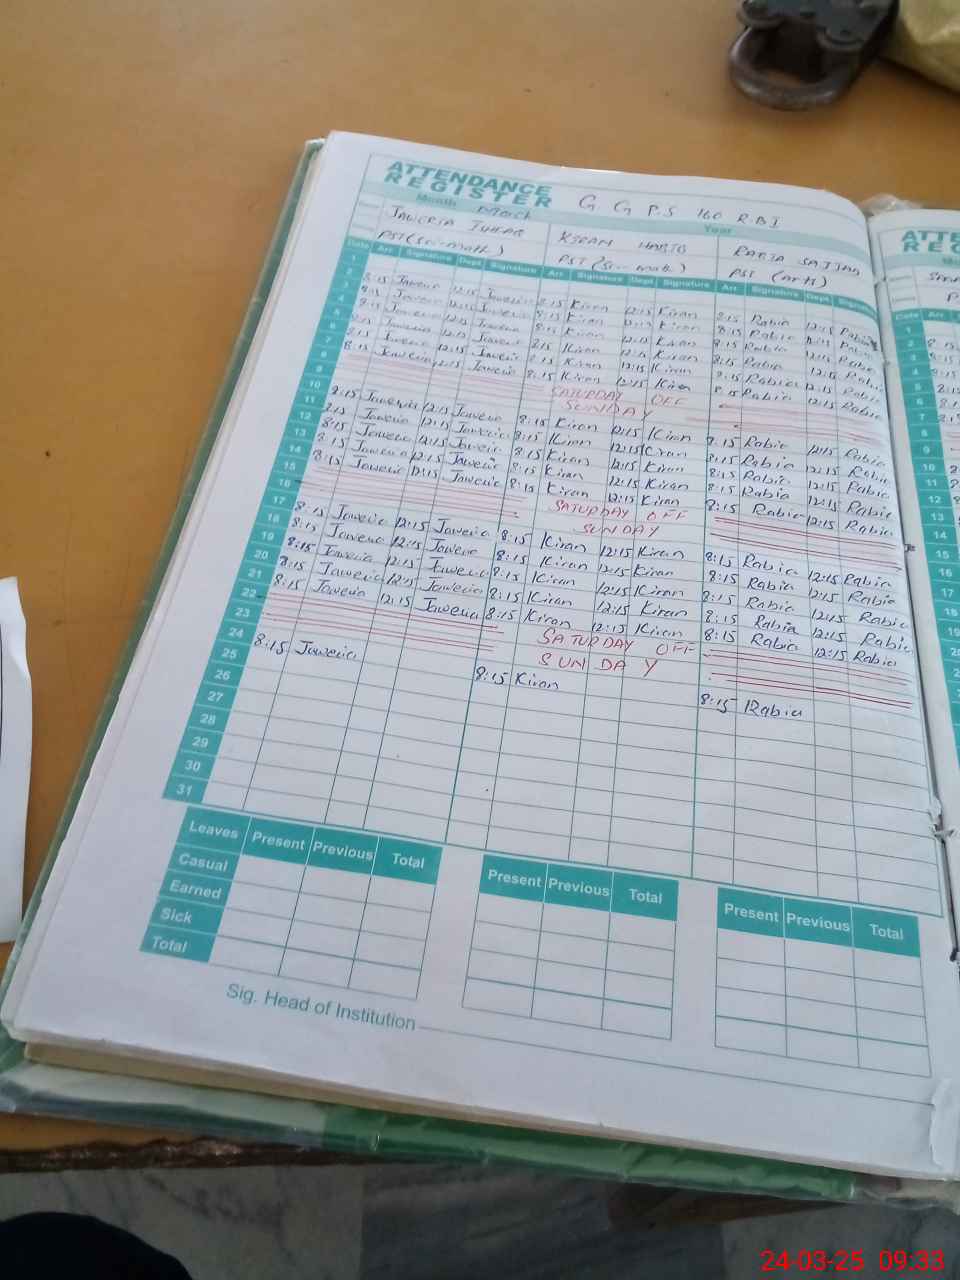 ATTENDANCE
REGISTER G. G P.S 160 R.B I
Month March Year
JAWERIA KIRAN RABIA SAJJAD
PST (Sci-math) PST (Sci-math) PST (Arts)
Date Arr. Signature Dept. Signature Arr. Signature Dept. Signature Arr. Signature Dept. Signature
1
2
3 8:15 Jaweria 12:15 Jaweria 8:15 Kiran 12:15 Kiran 8:15 Rabia 12:15 Rabia
4 8:15 Jaweria 12:15 Jaweria 8:15 Kiran 12:15 Kiran 8:15 Rabia 12:15 Rabia
5 8:15 Jaweria 12:15 Jaweria 8:15 Kiran 12:15 Kiran 8:15 Rabia 12:15 Rabia
6 8:15 Jaweria 12:15 Jaweria 8:15 Kiran 12:15 Kiran 8:15 Rabia 12:15 Rabia
7 8:15 Jaweria 12:15 Jaweria 8:15 Kiran 12:15 Kiran 8:15 Rabia 12:15 Rabia
8 SATURDAY OFF
9 SUNDAY
10 8:15 Jaweria 12:15 Jaweria 8:15 Kiran 12:15 Kiran 8:15 Rabia 12:15 Rabia
11 8:15 Jaweria 12:15 Jaweria 8:15 Kiran 12:15 Kiran 8:15 Rabia 12:15 Rabia
12 8:15 Jaweria 12:15 Jaweria 8:15 Kiran 12:15 Kiran 8:15 Rabia 12:15 Rabia
13 8:15 Jaweria 12:15 Jaweria 8:15 Kiran 12:15 Kiran 8:15 Rabia 12:15 Rabia
14 8:15 Jaweria 12:15 Jaweria 8:15 Kiran 12:15 Kiran 8:15 Rabia 12:15 Rabia
15 SATURDAY OFF
16 SUNDAY
17 8:15 Jaweria 12:15 Jaweria 8:15 Kiran 12:15 Kiran 8:15 Rabia 12:15 Rabia
18 8:15 Jaweria 12:15 Jaweria 8:15 Kiran 12:15 Kiran 8:15 Rabia 12:15 Rabia
19 8:15 Jaweria 12:15 Jaweria 8:15 Kiran 12:15 Kiran 8:15 Rabia 12:15 Rabia
20 8:15 Jaweria 12:15 Jaweria 8:15 Kiran 12:15 Kiran 8:15 Rabia 12:15 Rabia
21 8:15 Jaweria 12:15 Jaweria 8:15 Kiran 12:15 Kiran 8:15 Rabia 12:15 Rabia
22 SATURDAY OFF
23 SUNDAY
24 8:15 Jaweria 8:15 Kiran 8:15 Rabia
25
26
27
28
29
30
31
Leaves Present Previous Total Present Previous Total Present Previous Total
Casual
Earned
Sick
Total
Sig. Head of Institution
Date Arr.
1
2
3
4
5
6
7
8
9
10
11
12
13
14
15
16
17
18
19
20
24-03-25 09:33